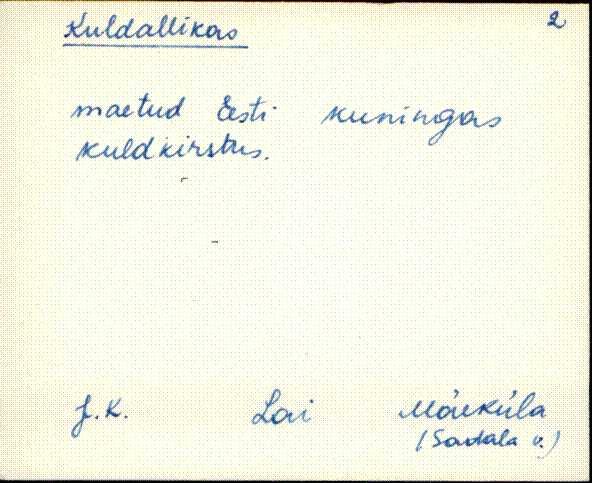 Kuldallikas 2
maetud Eesti kuningas
kuldkirstus.
J.K. Lai Mõisküla
(Sadala v.)